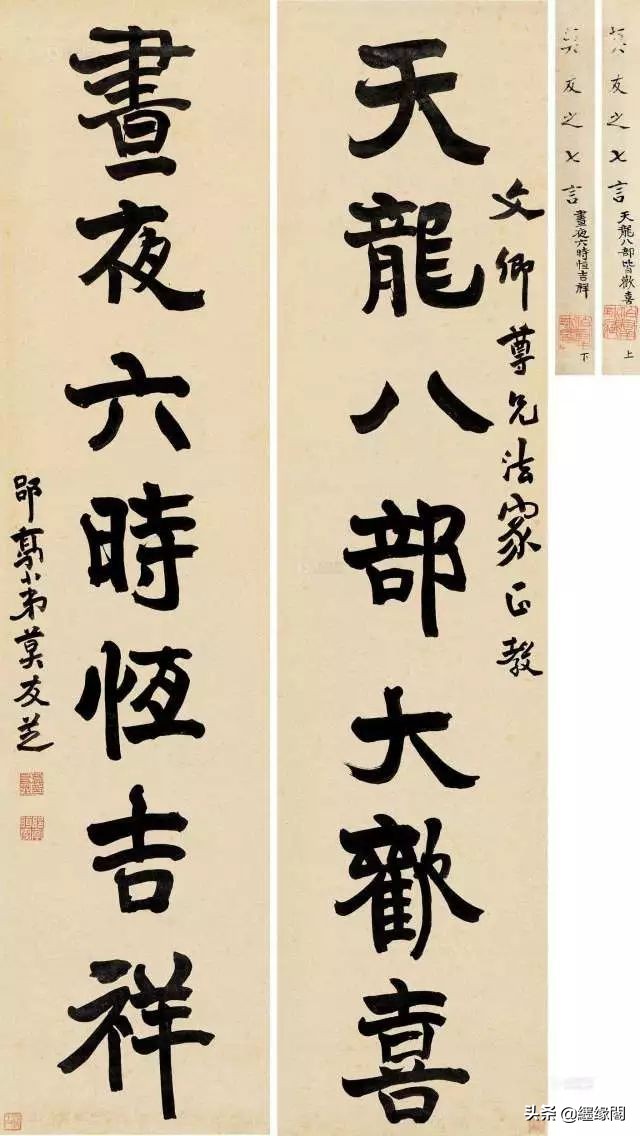 友之七言
天龍八部皆歡喜
上
友之七言
晝夜六時恒吉祥
下
文卿尊兄法家正教
天龍八部大歡喜
晝夜六時恆吉祥
郘亭小弟莫友芝
头条 @纆缘閣